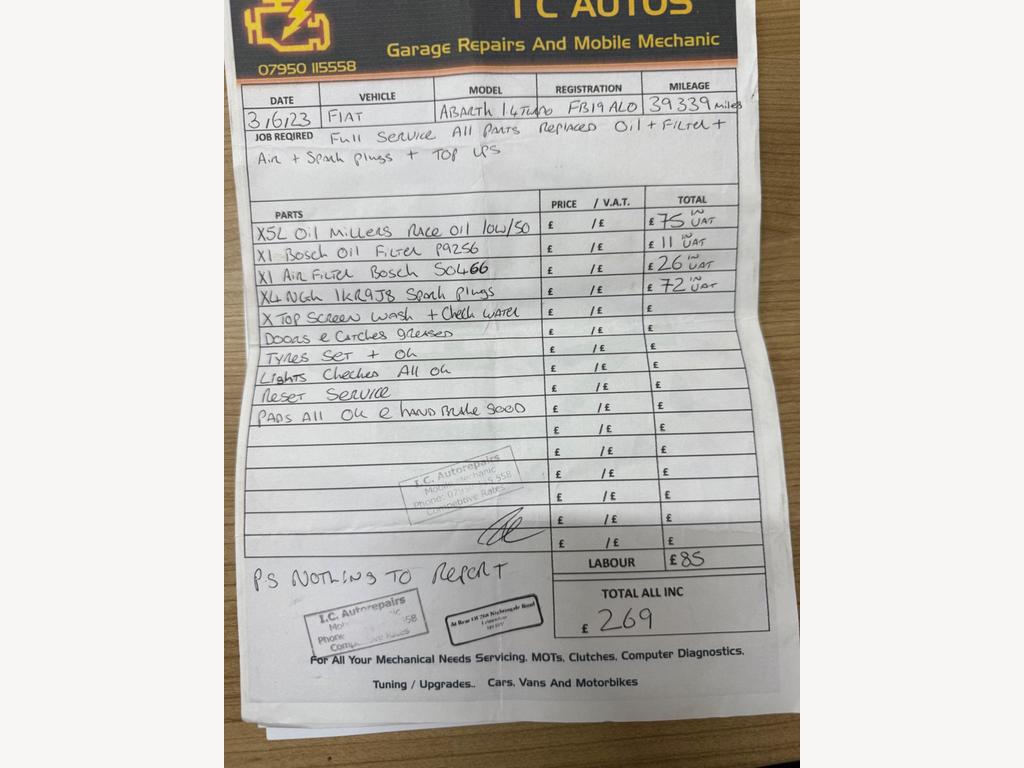 I C AUTOS
Garage Repairs And Mobile Mechanic
07950 115558
DATE VEHICLE MODEL REGISTRATION MILEAGE
3/6/23 FIAT ABARTH 1.4 TURBO FB19 ALO 39339 miles
JOB REQIRED FULL SERVICE ALL PARTS REPLACED OIL + FILTER +
AIR + SPARK PLUGS + TOP UPS
PARTS PRICE / V.A.T. TOTAL
X5L OIL MILLERS RACE OIL 10W/50 £ /£ £75 IN VAT
X1 BOSCH OIL FILTER P9256 £ /£ £11 IN VAT
X1 AIR FILTER BOSCH S0466 £ /£ £26 IN VAT
X4 NGK 1KR9J8 SPARK PLUGS £ /£ £72 IN VAT
X TOP SCREEN WASH + CHECK WATER £ /£ £
DOORS & CATCHES GREASED £ /£ £
TYRES SET + OK £ /£ £
LIGHTS CHECKED ALL OK £ /£ £
RESET SERVICE £ /£ £
PADS ALL OK & HAND BRAKE GOOD £ /£ £
£ /£ £
£ /£ £
£ /£ £
£ /£ £
£ /£ £
£ /£ £
I.C. Autorepairs
Mechanic
Phone: 558
Competitive Rates
LABOUR £85
PS NOTHING TO REPORT
TOTAL ALL INC
£ 269
I.C. Autorepairs
Phone 558
Rates
At Rear Of 268 Nightingale Road
For All Your Mechanical Needs Servicing, MOTs, Clutches, Computer Diagnostics.
Tuning / Upgrades.. Cars, Vans And Motorbikes